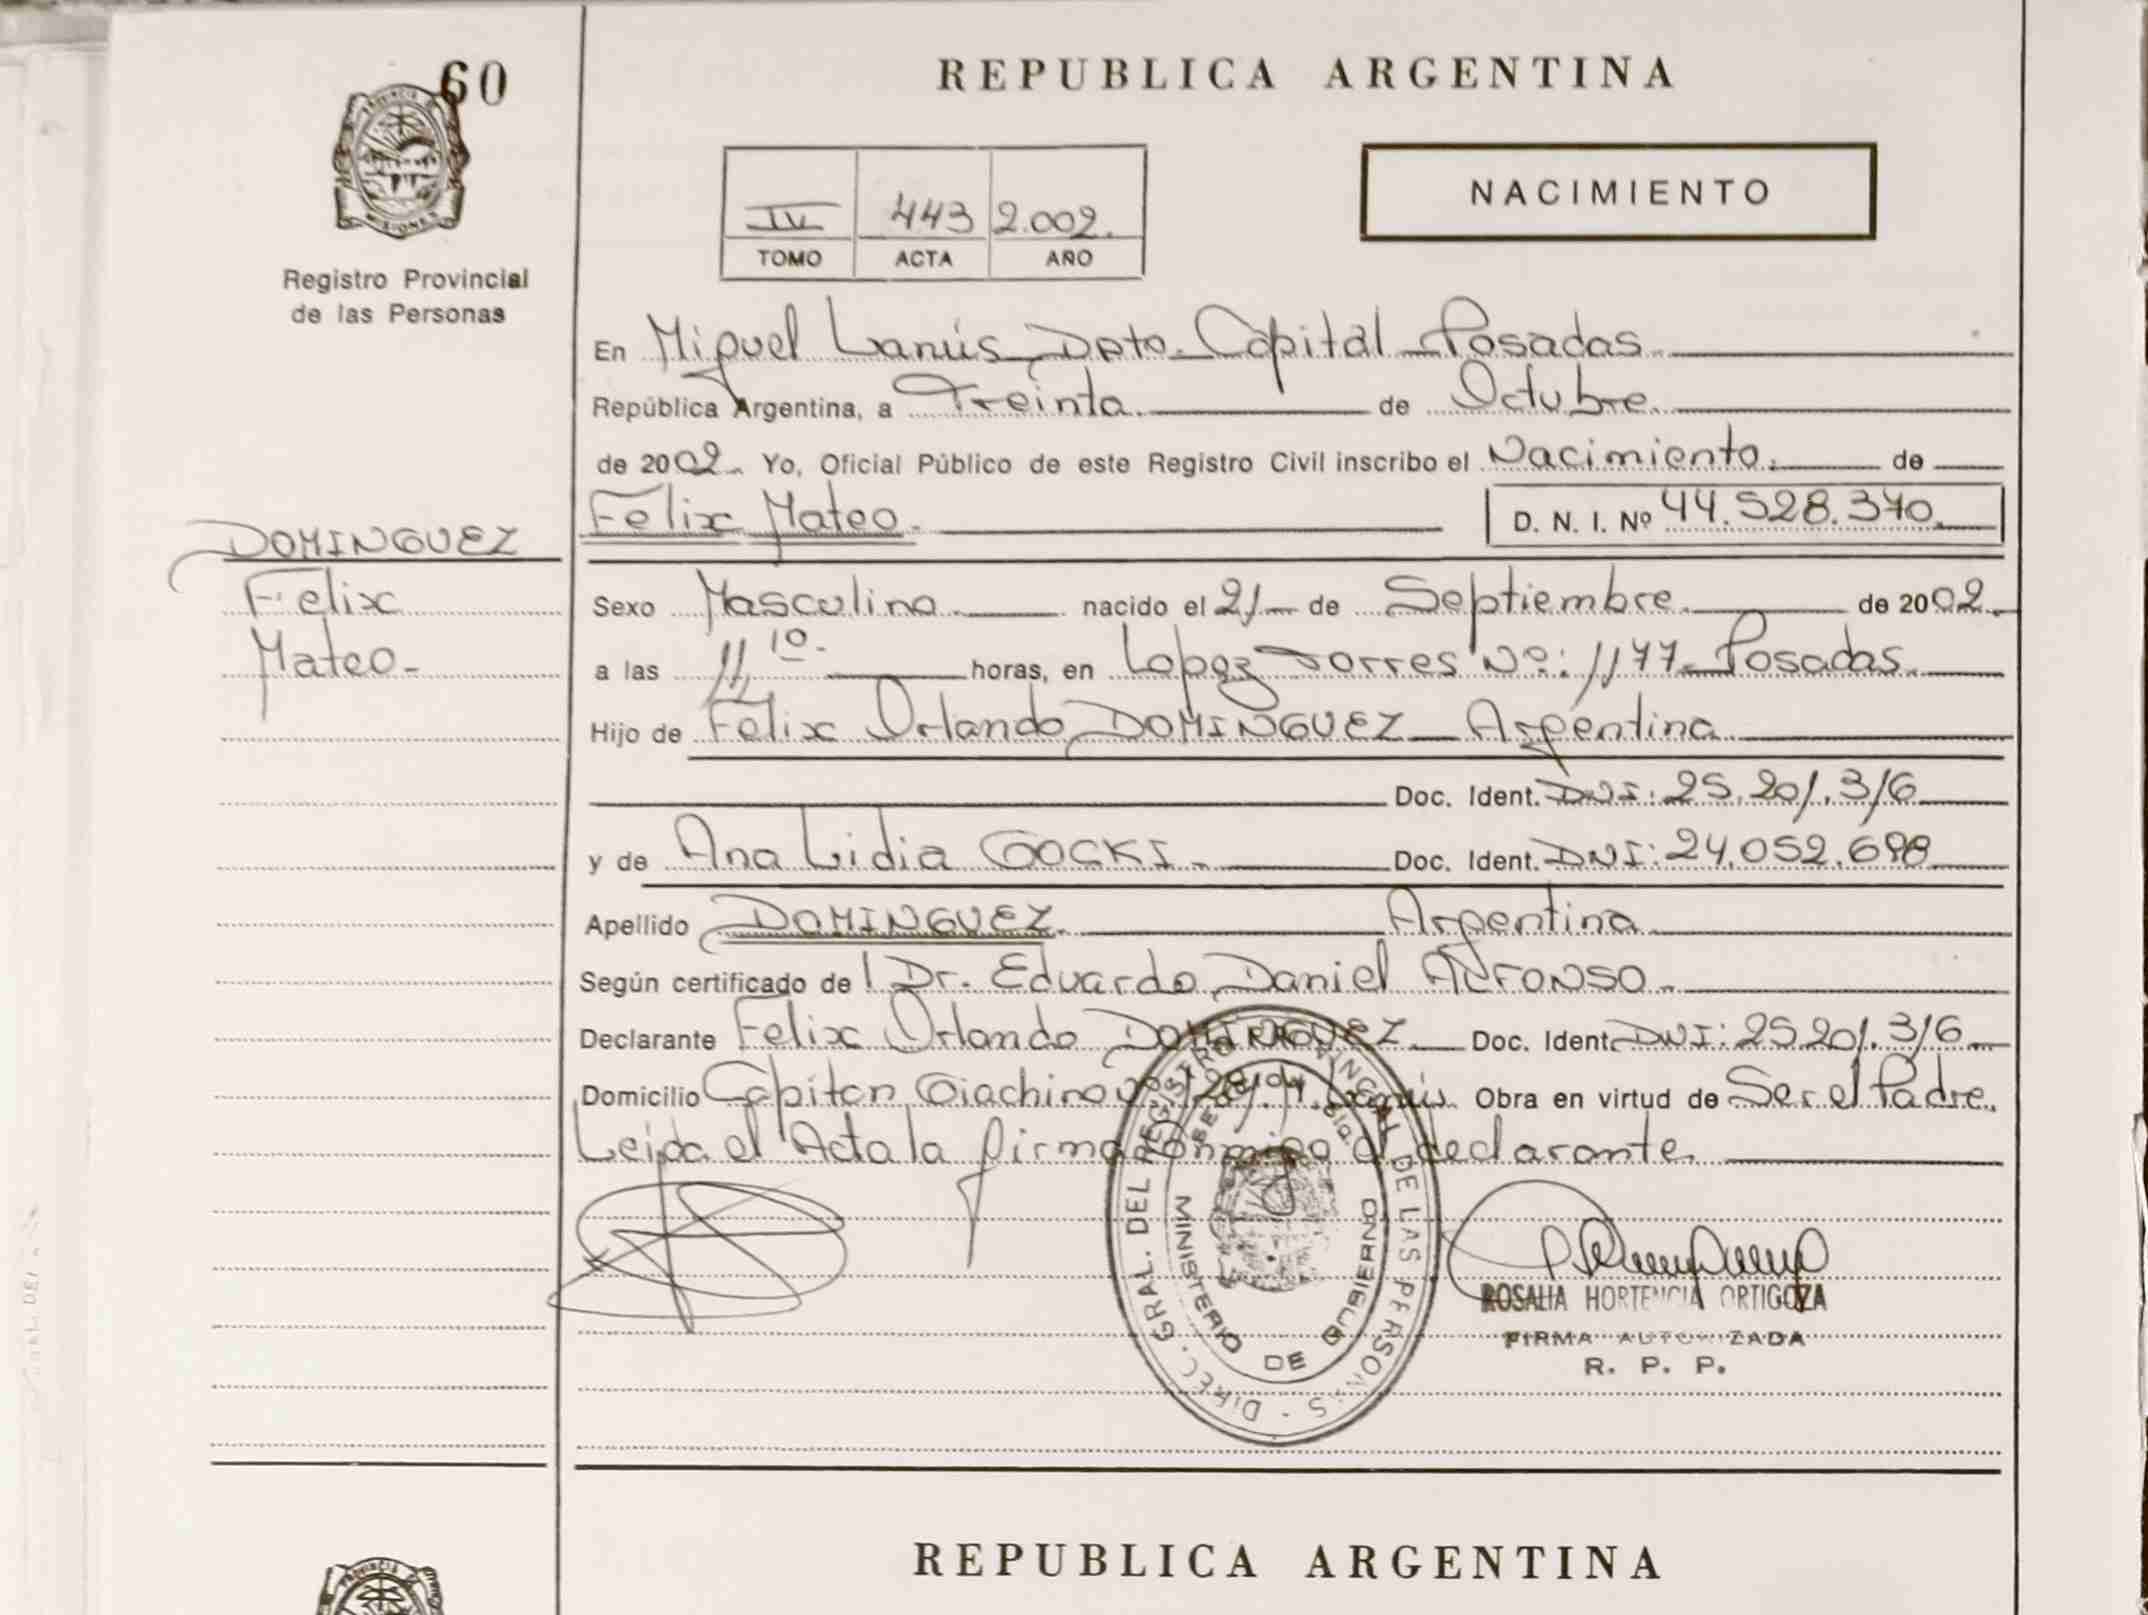 60
REPUBLICA ARGENTINA
NACIMIENTO
IV 443 2.002.
TOMO ACTA AÑO
Registro Provincial
de las Personas
En Miguel Lanús Dpto. Capital Posadas
República Argentina, a Treinta de Octubre
de 2002 Yo, Oficial Público de este Registro Civil inscribo el Nacimiento. de
Felix Mateo. D. N. I. Nº 44.528.370
DOMINGUEZ
Felix
Mateo-
Sexo Masculino nacido el 21 de Septiembre de 2002.
a las 11,10 horas, en Lopez Torres Nº: 1177 Posadas.
Hijo de Felix Orlando DOMINGUEZ Argentina
Doc. Ident. DNI: 25.201.316
y de Ana Lidia GOCKI. Doc. Ident. DNI: 24.052.698
Apellido DOMINGUEZ. Argentina
Según certificado de l Dr. Eduardo Daniel ALFONSO
Declarante Felix Orlando DOMINGUEZ Doc. Ident. DNI: 25.201.316
Domicilio Capitan Giachino Lanús Obra en virtud de Ser el Padre.
Leida el Acta la firma conmigo el declarante
DIREC. GRAL. DEL REGISTRO PROVINCIAL DE LAS PERSONAS
MINISTERIO DE GOBIERNO
ROSALIA HORTENCIA ORTIGOZA
FIRMA AUTORIZADA
R. P. P.
REPUBLICA ARGENTINA